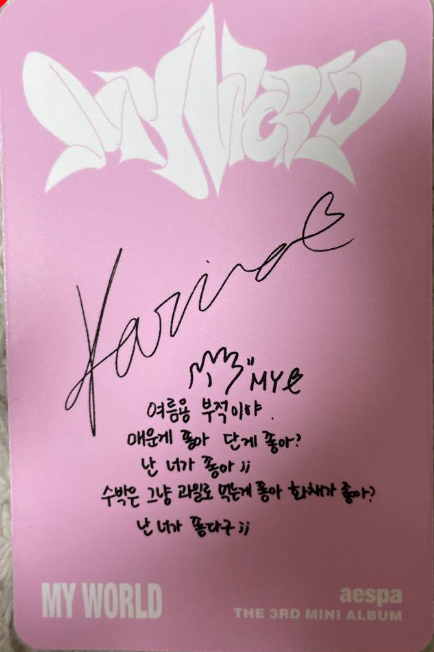 MY WORLD
Karina
MY
"MY
여름용 부적이야.
매운게 좋아 단게 좋아?
난 너가 좋아 ;;
수박은 그냥 과일로 먹는게 좋아 화채가 좋아?
난 너가 좋다구 ;;
MY WORLD
aespa
THE 3RD MINI ALBUM